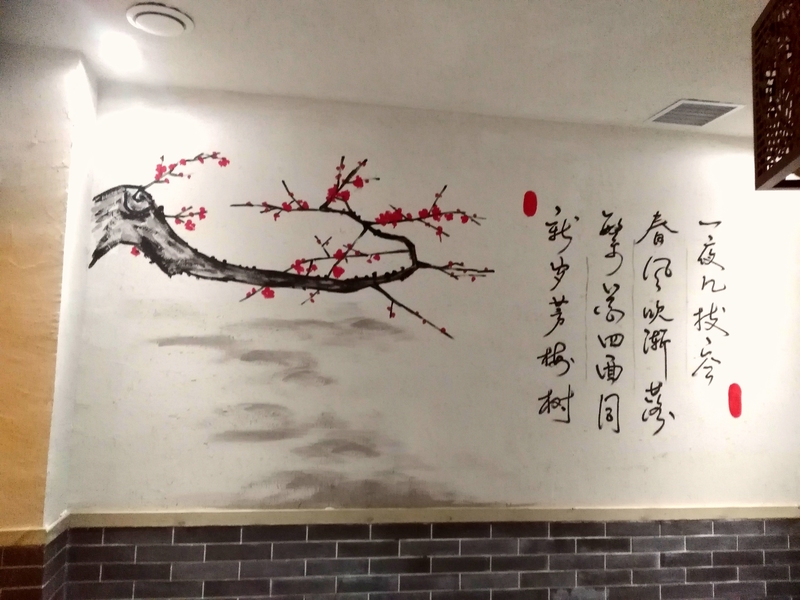 新岁芳梅树
繁四面同
春风吹渐落
一夜几枝空